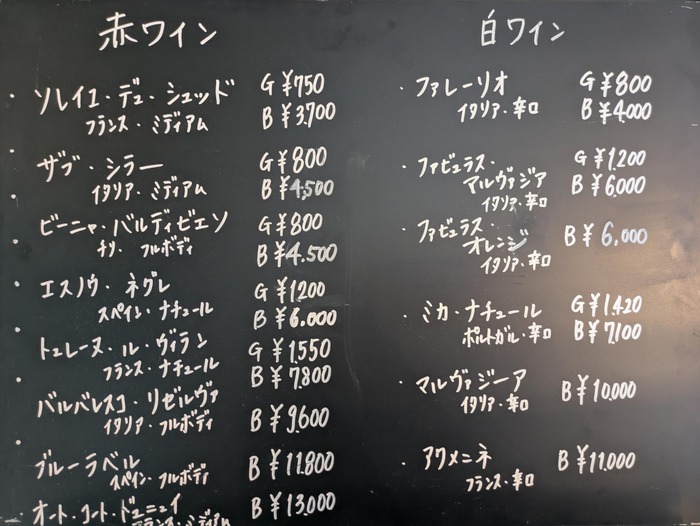 赤ワイン
・ソレイユ・デュ・シュッド G ¥750
フランス・ミディアム B ¥3,700
・ザブ・シラー G ¥800
イタリア・ミディアム B ¥4,500
・ビーニャ・バルディビエソ G ¥800
チリ・フルボディ B ¥4,500
・エスノウ・ネグレ G ¥1200
スペイン・ナチュール B ¥6,000
・トュレーヌ・ル・ヴィラン G ¥1,550
フランス・ナチュール B ¥7,800
・バルバレスコ・リゼルヴァ
イタリア・フルボディ B ¥9,600
・ブルーラベル B ¥11,800
スペイン・フルボディ
・オート・コート・ドュニュイ B ¥13,000
フランス・ミディアム
白ワイン
・ファレーリオ G ¥800
イタリア・辛口 B ¥4,000
・ファビュラス・ G ¥1,200
マルヴァジア B ¥6,000
イタリア・辛口
・ファビュラス・
オレンジ B ¥6,000
イタリア・辛口
・ミカ・ナチュール G ¥1,420
ポルトガル・辛口 B ¥7,100
・マルヴァジーア B ¥10,000
イタリア・辛口
・アクメニネ B ¥11,000
フランス・辛口